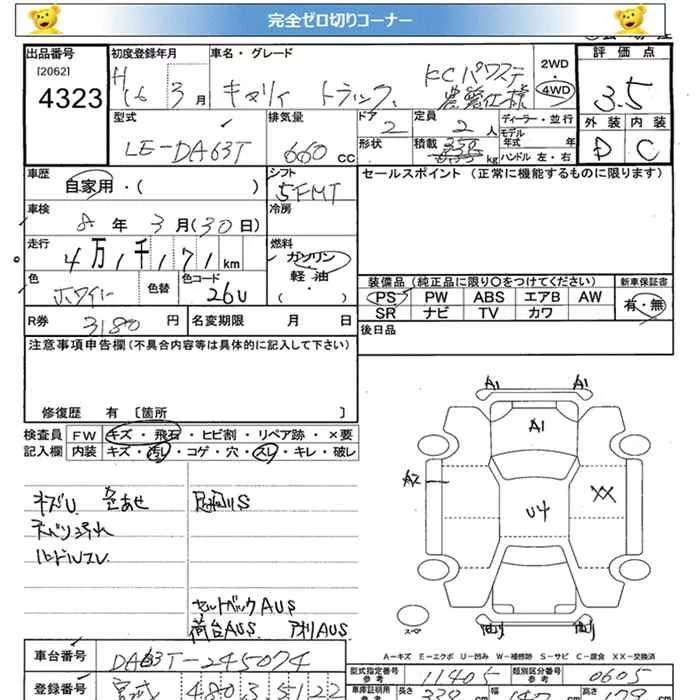 完全ゼロ切りコーナー
出品番号 初度登録年月 車名・グレード 評価点
[2062]
4323
H16 3月 キャリイ トラック KCパワステ 農繁仕様 2WD 4WD 3.5
型式 排気量 ドア 定員 ディーラー・並行 外装 内装
LE-DA63T 660 CC 2 2人 モデル年式 年 D C
形状 積載 350 kg ハンドル 左・右
車歴 シフト セールスポイント (正常に機能するものに限ります)
自家用・( ) 5FMT
車検 冷房
8年 3月(30日)
走行 燃料
4万1千171km ガソリン
軽・油
・( )
色 色替 色コード
ホワイト 26U
装備品(純正品に限り○をつけてください) 新車保証書
PS PW ABS エアB AW 有・無
SR ナビ TV カワ
R券 3180円 名変期限 月 日
後日品
注意事項申告欄(不具合内容等は具体的に記入して下さい)
修復歴 有 〔箇所 〕
検査員 FW キズ・飛石・ヒビ割・リペア跡・×要
記入欄 内装 キズ・汚レ・コゲ・穴・スレ・キレ・破レ
キズU
天ベリ汚れ
ハンドルスレ
セットバックAUS
荷台AUS アオリAUS
A1 A1
A1
A2
U4 XX
スペア
A-キズ E-エクボ U-凹み W-補修跡 S-サビ C-腐食 XX-交換済
車台番号 DA63T-245074
型式指定番号 参考 11405 類別区分番号 参考 0605
登録番号 宮城 480 え 5122
車庫証明用 参考 長さ 339 幅 147 高さ